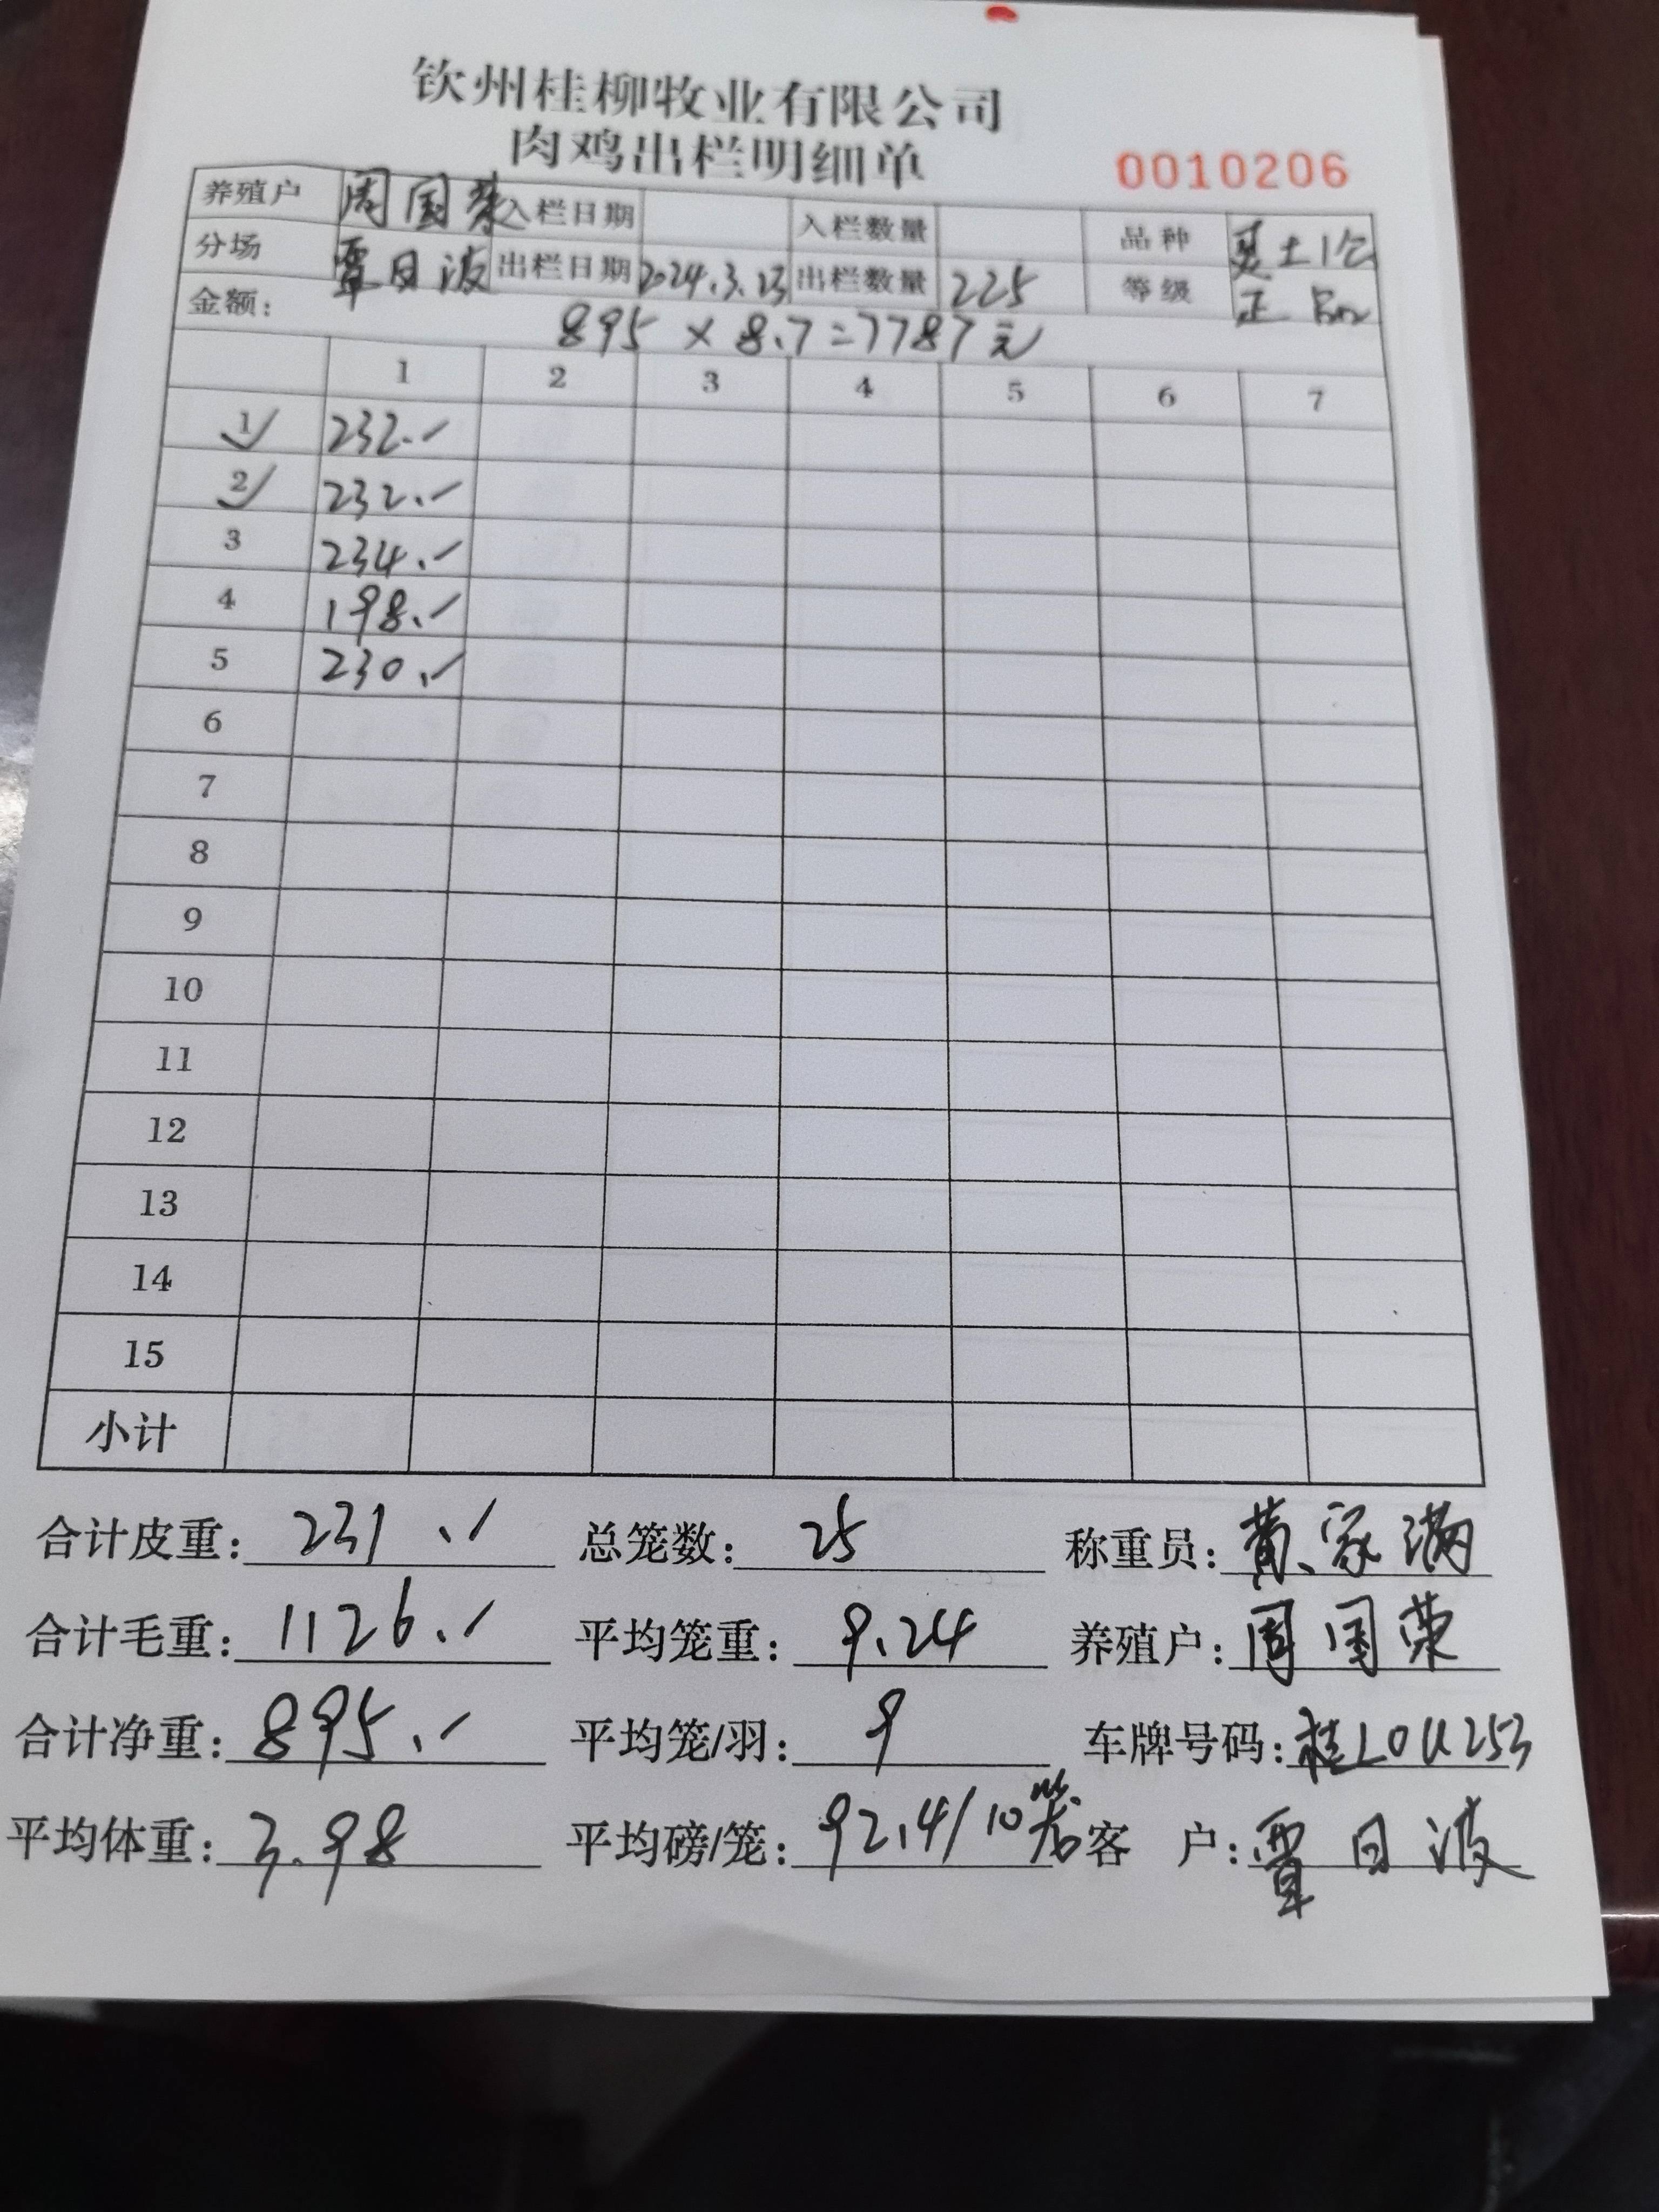 钦州桂柳牧业有限公司
肉鸡出栏明细单
0010206
养殖户 周国荣 入栏日期 入栏数量 品种 灵土1公
分场 覃日波 出栏日期 2024.3.23 出栏数量 225 等级 正品
金额: 895 × 8.7=7787元
1 2 3 4 5 6 7
1 232.
2 232.
3 234.
4 198.
5 230.
6
7
8
9
10
11
12
13
14
15
小计
合计皮重: 231. 总笼数: 25 称重员: 黄家满
合计毛重: 1126. 平均笼重: 9.24 养殖户: 周国荣
合计净重: 895. 平均笼/羽: 9 车牌号码: 桂L0U253
平均体重: 3.98 平均磅/笼: 92.4/10笼 客户: 覃日波